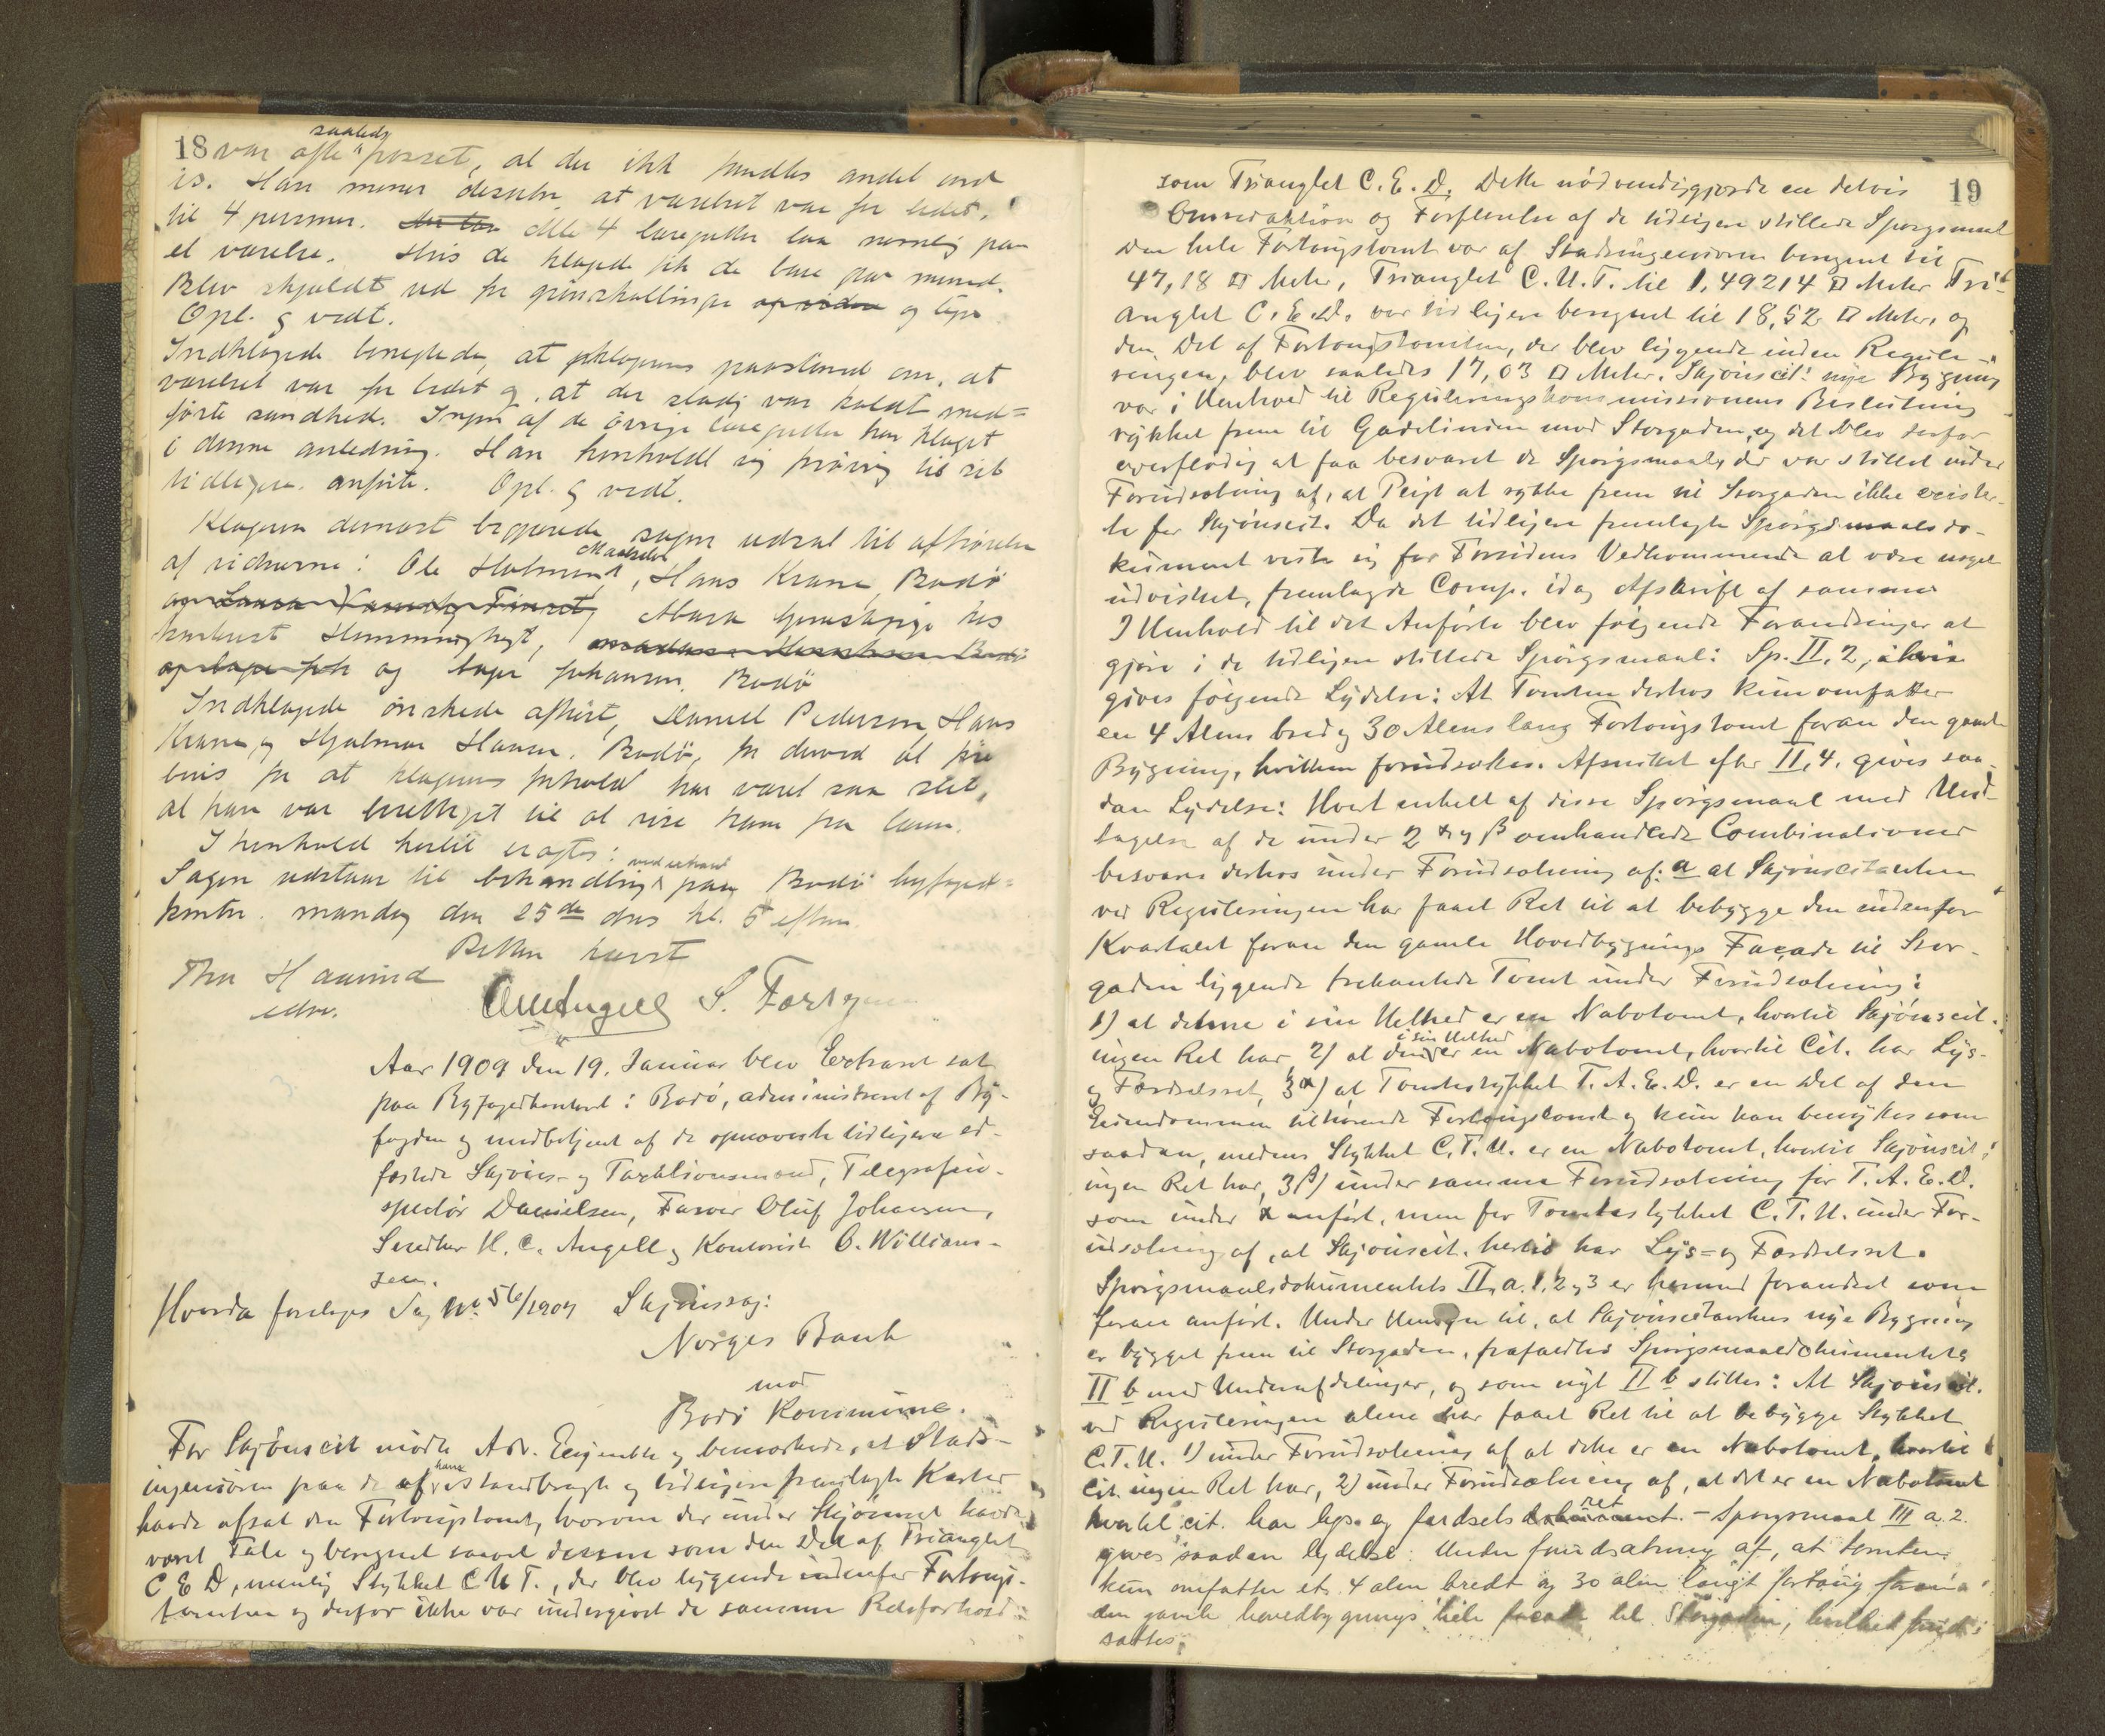 18 var ofte saaledes passet, at der ikke fandtes andet end
is. Han mener desuten at værelset var for lidet
til 4 personer. Alle 4 læregutter laa nemlig paa
et værelse. Hvis de klaget fik de bare paa mund.
Blev skjældt ud for grinskallinger og tyve
Opl. g vedt.
Indklagede benegtede, at klagerens paastand om, at
værelset var for lidet og at der stadig var koldt med-
førte sandhed. Ingen af de øvrige læregutter har klaget
i denne anledning. Han henholdt sig forøvrig til sit
tidligere anførte. Opl. g vedt.
Klageren dernæst begjærede sagen udsat til afhørelse
af vidnerne: Ole Hansen, Hans Krane, Bodø
og tjenestepige hos
og Johansen, Bodø
Indklagede ønskede afhørt, Daniel Pedersen, Hans
Krane og Hjalmar Hansen, Bodø, for derved at føre
bevis for at klagerens forhold har været saa slet,
at han var berettiget til at vise ham fra læren.
I henhold hertil vragtes:
Sagen udstaar til behandling ved extraret paa Bodø byfoged-
kontor mandag den 25de dns kl. 5 efterm.
Retten hævet
Thu Haavind
edsv.
S. Forsgren
Aar 1909 den 19. Januar blev Extraret sat
paa Byfogedkontoret i Bodø, administreret af By-
fogden og medbetjent af de opnævnte tidligere ed-
fæstede Skjøns- og Taxtionsmænd, Telegrafin-
spektør Danielsen, Farver Oluf Johansen,
Snedker H. C. Angell og Kontorist O. William-
sen.
Hvorda foretages Sag No 56/1907 Skjønssag:
Norges Bank
mod
Bodø Kommune.
For Skjønscit mødte Adv. og bemærkede, at Stads-
ingeniøren paa de af ham istandbragte og tidligere fremlagte Karter
havde afsat den Fortougstomt, hvorom der under Skjønnet havde
været Tale og beregnet saavel denne som den Del af Trianglet
C E D, nemlig Stykket C U T., der blev liggende udenfor Fortougs-
tomten og derfor ikke var undergivet de samme Retsforhold
19
som Trianglet C. E. D. Dette nødvendiggjorde en delvis
Omredaktion og Forflerelse af de tidligere stillede Spørgsmaal
Den hele Fortougstomt var af Stadsingeniøren beregnet til
47,18 □ Meter, Trianglet C. U. T. til 1,49214 □ Meter Tri-
anglet C. E. D. var tidligere beregnet til 18,52 □ Meter, og
den Del af Fortougstomten, der blev liggende inden Regule-
ringen, blev saaledes 17,03 □ Meter. Skjønscit' nye Bygning
var i Henhold til Reguleringskommissionens Beslutning
rykket frem til Gadelinien mod Storgaden, og det blev derfor
overflødig at faa besvaret de Spørgsmaal, der var stillet under
Forudsætning af, at Pligt at rykke frem til Storgaden ikke exister-
te for Skjønscit. Da det tidligere fremlagte Spørgsmaalsdo-
kument viste sig for Forsidens Vedkommende at være noget
udvisket, fremlagde Comp. idag Afskrift af samme
I Henhold til det Anførte blev følgende Forandringer at
gjøre i de tidligere stillede Spørgsmaal: Sp. II, 2,
gives følgende Lydelse: At Tomten derhos kun omfatter
en 4 Alens bred og 30 Alens lang Fortougstomt foran den gamle
Bygning, hvilken forudsættes. Afsnittet efter II, 4. gives saa-
dan Lydelse: Hvert enkelt af disse Spørgsmaal med Und-
tagelse af de under 2 α og β omhandlede Combinationer
besvares derhos under Forudsætning af: a at Skjønscitanten
ved Reguleringen har faaet Ret til at bebygge den udenfor
Kvartalet foran den gamle Hovedbygnings Façade til Stor-
gaden liggende trekantede Tomt under Forudsætning:
1) at denne i sin Helhed er en Nabotomt, hvortil Skjønscit.
ingen Ret har, 2) at den i sin Helhed er en Nabotomt, hvortil Cit. har Lys-
og Færdselsret, 3α) at Tomtestykket T. A. E. D. er en Del af den
Eiendommen tilhørende Fortougstomt og kun kan benyttes som
saadan, medens Stykket C. T. U. er en Nabotomt, hvortil Skjønscit
ingen Ret har, 3β) under samme Forudsætning for T. A. E. D.
som under α anført, men for Tomtestykket C. T. U. under For-
udsætning af, at Skjønscit. hertil har Lys- og Færdselsret.
Spørgsmaalsdokumentets II, a. 1, 2 og 3 er hermed forandret som
foran anført. Under Hensyn til, at Skjønscitantens nye Bygning
er bygget frem til Storgaden, frafaldtes Spørgsmaaldokumentets
II b med Underafdelinger, og som nyt II b stilles: At Skjønscit.
ved Reguleringen alene har faaet Ret til at bebygge Stykket
C. T. U. 1) under Forudsætning af at dette er en Nabotomt, hvortil
Cit. ingen Ret har, 2) under Forudsætning af, at det er en Nabotomt
hvortil cit. har lys- og færdselsret. - Spørgsmaal III a. 2.
gives saadan lydelse: Under forudsætning af, at tomten
kun omfatter et 4 alen bredt og 30 alen langt fortaug foran
den gamle hovedbygnings hele facade til Storgaden, hvilket forud-
sættes.